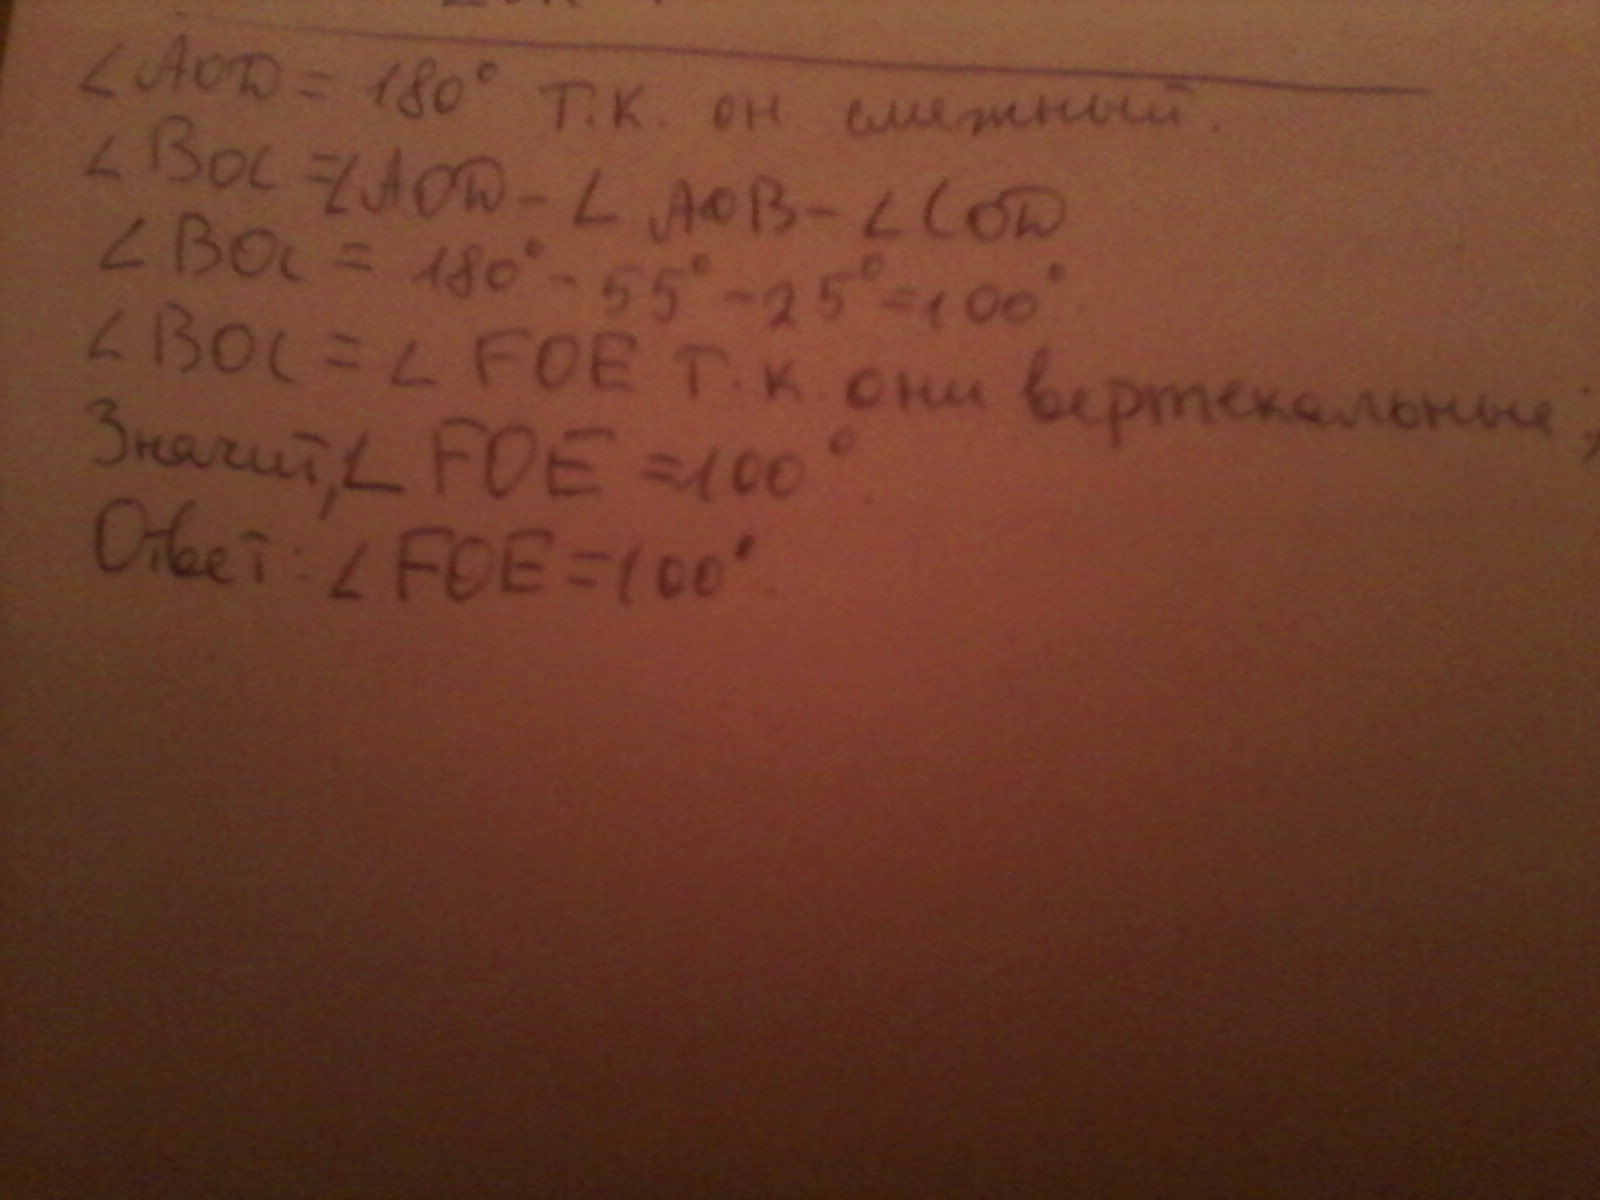 ∠AOD = 180° т.к. он смежный.
∠BOC = ∠AOD - ∠AOB - ∠COD
∠BOC = 180° - 55° - 25° = 100°.
∠BOC = ∠FOE т.к. они вертекальные;
Значит, ∠FOE = 100°
Ответ: ∠FOE = 100°.